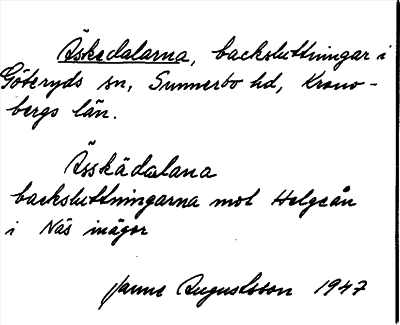 Äskedalarna, backsluttningar i
Göteryds sn, Sunnerbo hd, Krono-
bergs län.
Ässkädalana
backsluttningarna mot Helgeån
i Näs inägor
Janne Augustsson 1947